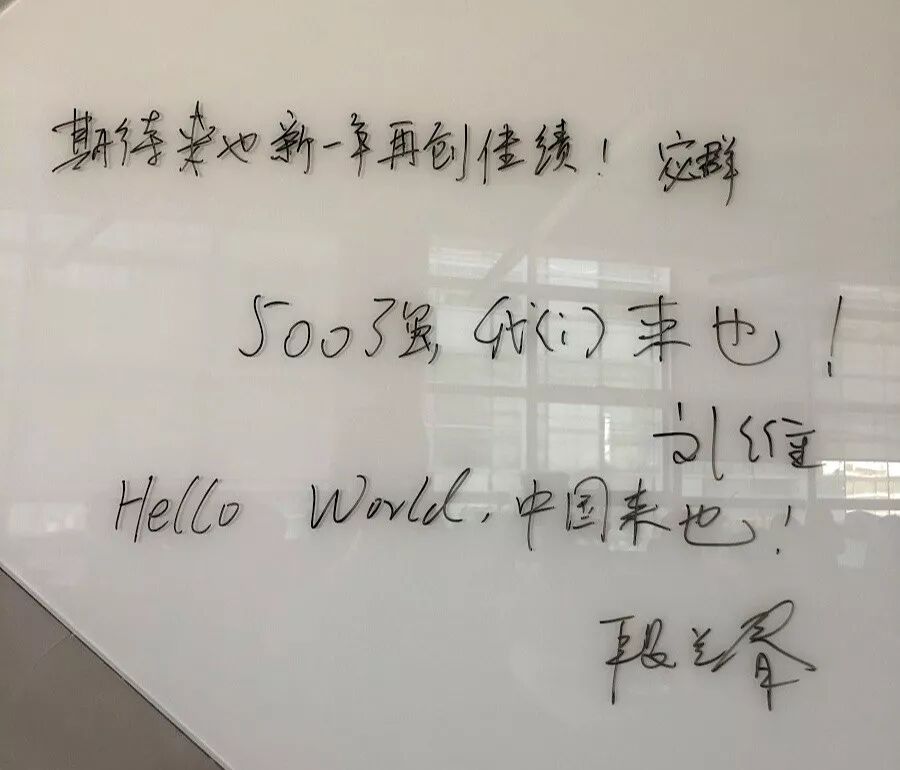 期待来也新一年再创佳绩！
500强, 我(i)来也！
刘维
Hello World, 中国来也！
段兰